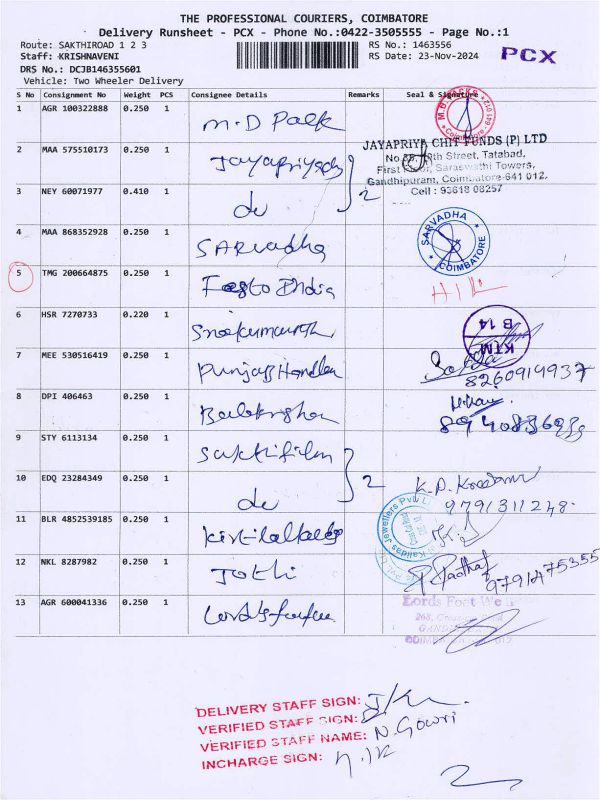 THE PROFESSIONAL COURIERS, COIMBATORE
Delivery Runsheet - PCX - Phone No.:0422-3505555 - Page No.:1
Route: SAKTHIROAD 1 2 3
RS No.: 1463556
PCX
Staff: KRISHNAVENI
RS Date: 23-Nov-2024
DRS No.: DCJB146355601
Vehicle: Two Wheeler Delivery
S No Consignment No Weight PCS Consignee Details Remarks Seal & Signature
1 AGR 100322888 0.250 1 M.D Pack
2 MAA 575510173 0.250 1 Jayapriya
JAYAPRIYA CHIT FUNDS (P) LTD
Street, Tatabad,
First Floor, Saraswathi Towers,
Gandhipuram, Coimbatore-641 012.
Cell : 93618 08257
3 NEY 60071977 0.410 1 do 2
4 MAA 868352928 0.250 1 SARvadha
SARVADHA COIMBATORE
5 TMG 200664875 0.250 1 Festo India
6 HSR 7270733 0.220 1
KTM B 14
7 MEE 530516419 0.250 1 Punjab Handlm
8260914937
8 DPI 406463 0.250 1 Balakrishn
9 STY 6113134 0.250 1 Sakthifilm
10 EDQ 23284349 0.250 1 do 2
9791311248
11 BLR 4852539185 0.250 1
12 NKL 8287982 0.250 1 Jothi
9791475355
13 AGR 600041336 0.250 1
Lords Foot We
DELIVERY STAFF SIGN:
VERIFIED STAFF SIGN:
VERIFIED STAFF NAME: N. Gowri
INCHARGE SIGN: